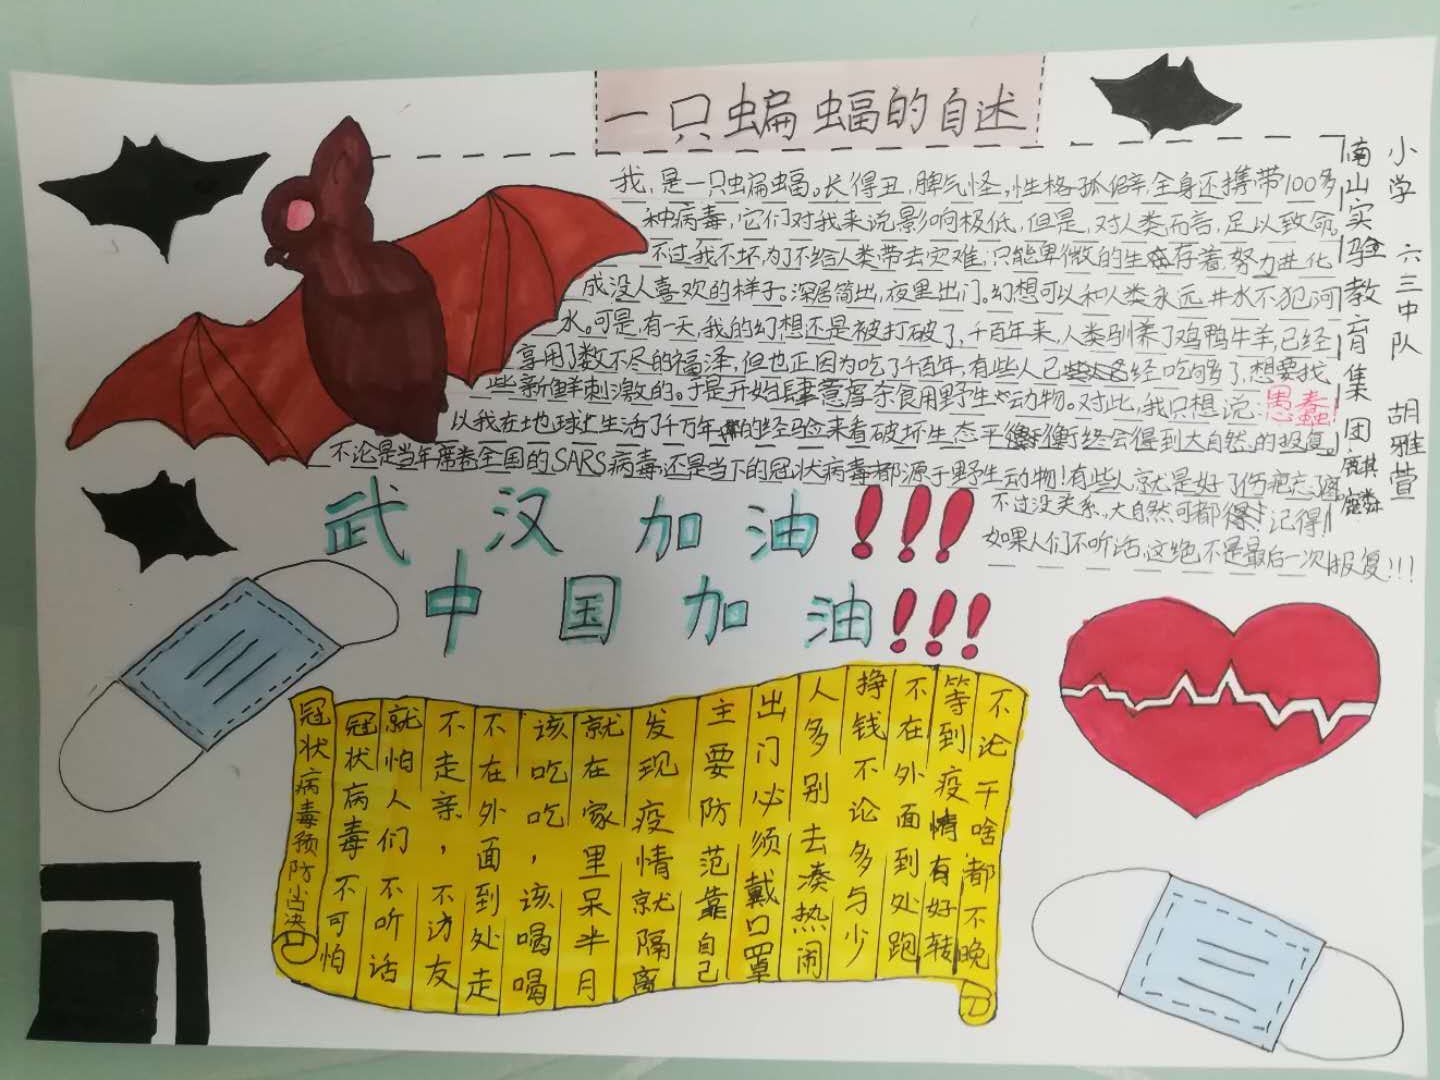 一只蝙蝠的自述
我,是一只蝙蝠。长得丑,脾气怪,性格孤僻,全身还携带100多
种病毒,它们对我来说影响极低,但是,对人类而言,足以致命。
不过,我不坏,为了不给人类带去灾难,只能卑微的生存着,努力进化
成没人喜欢的样子。深居简出,夜里出门。幻想可以和人类永远井水不犯河
水。可是,有一天,我的幻想还是被打破了,千百年来,人类驯养了鸡鸭牛羊,已经
享用了数不尽的福泽,但也正因为吃了千百年,有些人已经吃够了,想要找
些新鲜刺激的。于是开始肆意虐杀食用野生动物。对此,我只想说:愚蠢!
以我在地球上生活了千万年的经验来看破坏生态平衡终会得到大自然的报复。
不论是当年席卷全国的SARS病毒,还是当下的冠状病毒都源于野生动物!有些人就是好了伤疤忘
不过没关系,大自然可都记得!
如果人们不听话,这绝不是最后一次报复!!!
南山实验教育集团麒麟
小学 六三中队 胡雅萱
武汉加油!!!
中国加油!!!
冠状病毒预防
冠状病毒不可怕
就怕人们不听话
不走亲,不访友
不在外面到处走
该吃吃,该喝喝
就在家里呆半月
发现疫情就隔离
主要防范靠自己
出门必须戴口罩
人多别去凑热闹
挣钱不论多与少
不在外面到处跑
等到疫情有好转
不论干啥都不晚